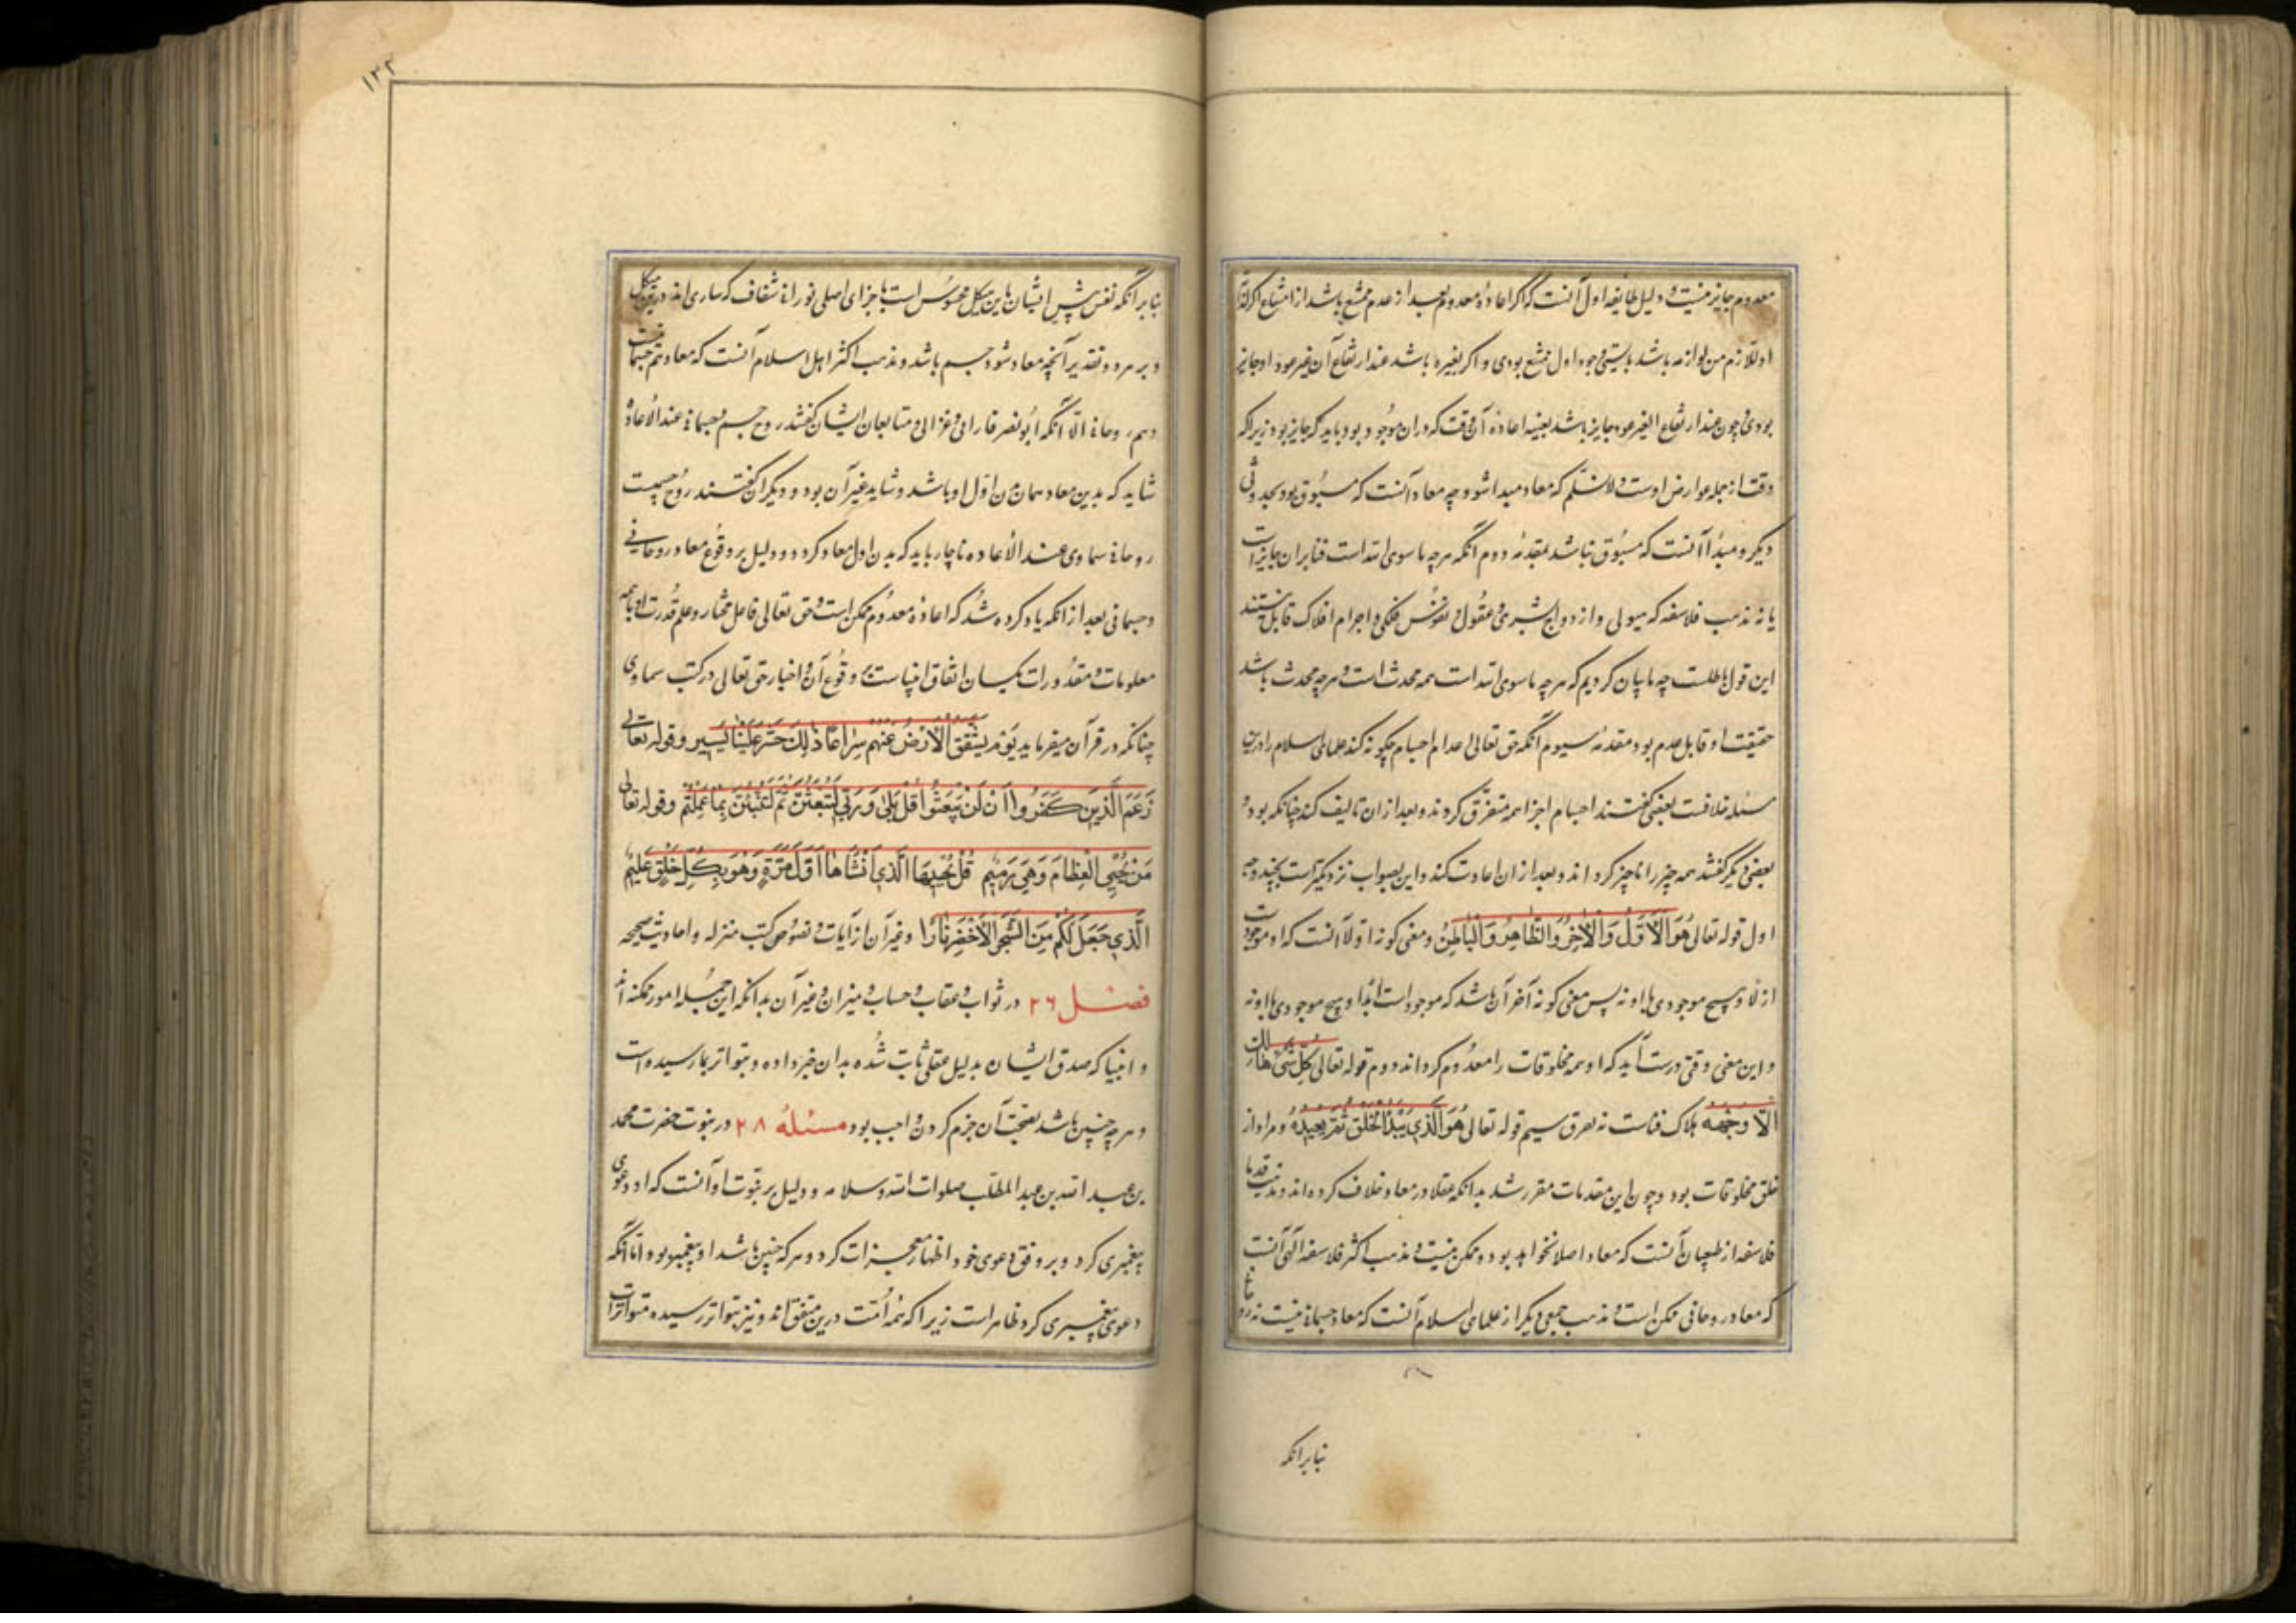 معدوم جایز نیست و دلیل طایفه اول آنست که اگر اعادهٔ معدوم بعد از عدم ممتنع باشد از امتناع اگر لذا
او للازم من لوازمه باشد بایستی وجود اول ممتنع بودی و اگر بغیره باشد عند ارتفاع آن غیر عود او جایز
بودی و چون عند ارتفاع الغیر عود جایز باشد بعینه اعادهٔ آن وقت که دران موجود بود باید که جایز بود زیرا که
وقت از جمله عوارض اوست و لا نسلم که معاد مبدا شود چه معاد آنست که مسبوق بود بحدوثی
دیگر و مبدأ آنست که مسبوق نباشد مقدمهٔ دوم آنکه هرچه ماسوی الله است فنا بران جایز است
یا نه مذهب فلاسفه که هیولی و ارواح بشری و عقول و نفوس فلکی و اجرام افلاک قابل نیستند
این قول باطلست چه ما بیان کردیم که هرچه ماسوی الله است همه محدث است و هرچه محدث باشد
حقیقت او قابل عدم بود مقدمهٔ سیوم آنکه حق تعالی اعدام اجسام چگونه کند علمای اسلام را درین
مسئله خلافست بعضی گفتند اجسام اجزا همه متفرق گرداند و بعد ازان تالیف کند چنانکه بود و
بعضی دیگر گفتند همه چیز را ناچیز گرداند و بعد ازان اعادت کند و این بصواب نزدیکتر است بچند وجه
اول قوله تعالی هُوَ الْأَوَّلُ وَالْآخِرُ وَالظَّاهِرُ وَالْبَاطِنُ و معنی کونه اولا آنست که او موجود است
ازلا و هیچ موجودی با او نه پس معنی کونه آخر آن باشد که موجود است ابدا و هیچ موجودی با او نه
و این معنی وقتی درست آید که او همه مخلوقات را معدوم گرداند دوم قوله تعالی کُلُّ شَیْءٍ هَالِكٌ
إِلَّا وَجْهَهُ هلاک فناست نه تفرق سیم قوله تعالی هُوَ الَّذِی یَبْدَأُ الْخَلْقَ ثُمَّ یُعِیدُهُ و مراد از
خلق مخلوقات بود و چون این مقدمات مقرر شد بدانکه عقلا در معاد خلاف کرده‌اند و مذهب قدما
فلاسفه از طبیعیان آنست که معاد اصلا نخواهد بود و ممکن نیست و مذهب اکثر فلاسفه الهی آنست
که معاد روحانی ممکن است و مذهب جمعی دیگر از علمای اسلام آنست که معاد جسمانی نیست نه روحانی
بنابرانکه
۱۳۲
بنابرآنکه نفس پیش ایشان یا این هیکل محسوس است یا اجزای اصلی نورانی شفاف که ساری‌اند درین هیکل
و بر هر دو تقدیر آنچه معاد شود جسم باشد و مذهب اکثر اهل اسلام آنست که معاد هم جسمانیست
و هم روحانی الا آنکه ابونصر فارابی و غزالی و متابعان ایشان گفتند روح جسم جسمانی عند الاعاده
شاید که بدین معاد همان بدن اول او باشد و شاید غیر آن بود و دیگران گفتند روح جسمیست
روحانی سماوی عند الاعاده ناچار باید که بدن اول معاد گردد و دلیل بر وقوع معاد روحانی
و جسمانی بعد از آنکه یاد کرده شد که اعادهٔ معدوم ممکن است و حق تعالی فاعل مختار و علم و قدرت او با همه
معلومات و مقدورات یکسان اتفاق انبیاست بر وقوع آن و اخبار حق تعالی در کتب سماوی
چنانکه در قرآن میفرماید یَوْمَ تَشَقَّقُ الْأَرْضُ عَنْهُمْ سِرَاعًا ذَلِكَ حَشْرٌ عَلَیْنَا یَسِیر و قوله تعالی
زَعَمَ الَّذِینَ كَفَرُوا أَنْ لَنْ یُبْعَثُوا قُلْ بَلَى وَرَبِّی لَتُبْعَثُنَّ ثُمَّ لَتُنَبَّؤُنَّ بِمَا عَمِلْتُمْ و قوله تعالی
مَنْ یُحْیِی الْعِظَامَ وَهِیَ رَمِیمٌ قُلْ یُحْیِیهَا الَّذِی أَنْشَأَهَا أَوَّلَ مَرَّةٍ وَهُوَ بِكُلِّ خَلْقٍ عَلِیمٌ
الَّذِی جَعَلَ لَكُمْ مِنَ الشَّجَرِ الْأَخْضَرِ نَارًا و غیر آن از آیات و نصوص کتب منزله و احادیث صحیحه
فصل ۲۶ در ثواب و عقاب و حساب و میزان و غیر آن بدانکه این جمله امور ممکنه‌اند
و انبیا که صدق ایشان بدلیل عقلی ثابت شده بدان خبر داده و بتواتر بما رسیده است
و هرچه چنین باشد بصحت آن جزم کردن واجب بود مسئلهٔ ۲۸ در نبوت حضرت محمد
بن عبد الله بن عبد المطلب صلوات الله و سلامه و دلیل بر نبوت او آنست که او دعوی
پیغمبری کرد و بر وفق دعوی خود اظهار معجزات کرد و هرکه چنین باشد او پیغمبر بود اما آنکه
دعوی پیغمبری کرد ظاهر است زیرا که همه امت درین متفق‌اند و نیز بتواتر رسیده متواترات